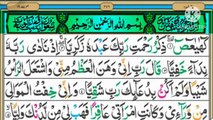 بِسْمِ اللهِ الرَّحْمٰنِ الرَّحِيْمِ
كٓهٰيٰعٓصٓ ذِكْرُ رَحْمَتِ رَبِّكَ عَبْدَهٗ زَكَرِيَّا اِذْ نَادٰى رَبَّهٗ
نِدَآءً خَفِيًّا قَالَ رَبِّ اِنِّيْ وَهَنَ الْعَظْمُ مِنِّيْ وَاشْتَعَلَ الرَّاْسُ
شَيْبًا وَّلَمْ اَكُنْۢ بِدُعَآئِكَ رَبِّ شَقِيًّا وَاِنِّيْ خِفْتُ الْمَوَالِيَ
مِنْ وَّرَآءِيْ وَكَانَتِ امْرَاَتِيْ عَاقِرًا فَهَبْ لِيْ مِنْ لَّدُنْكَ وَلِيًّا